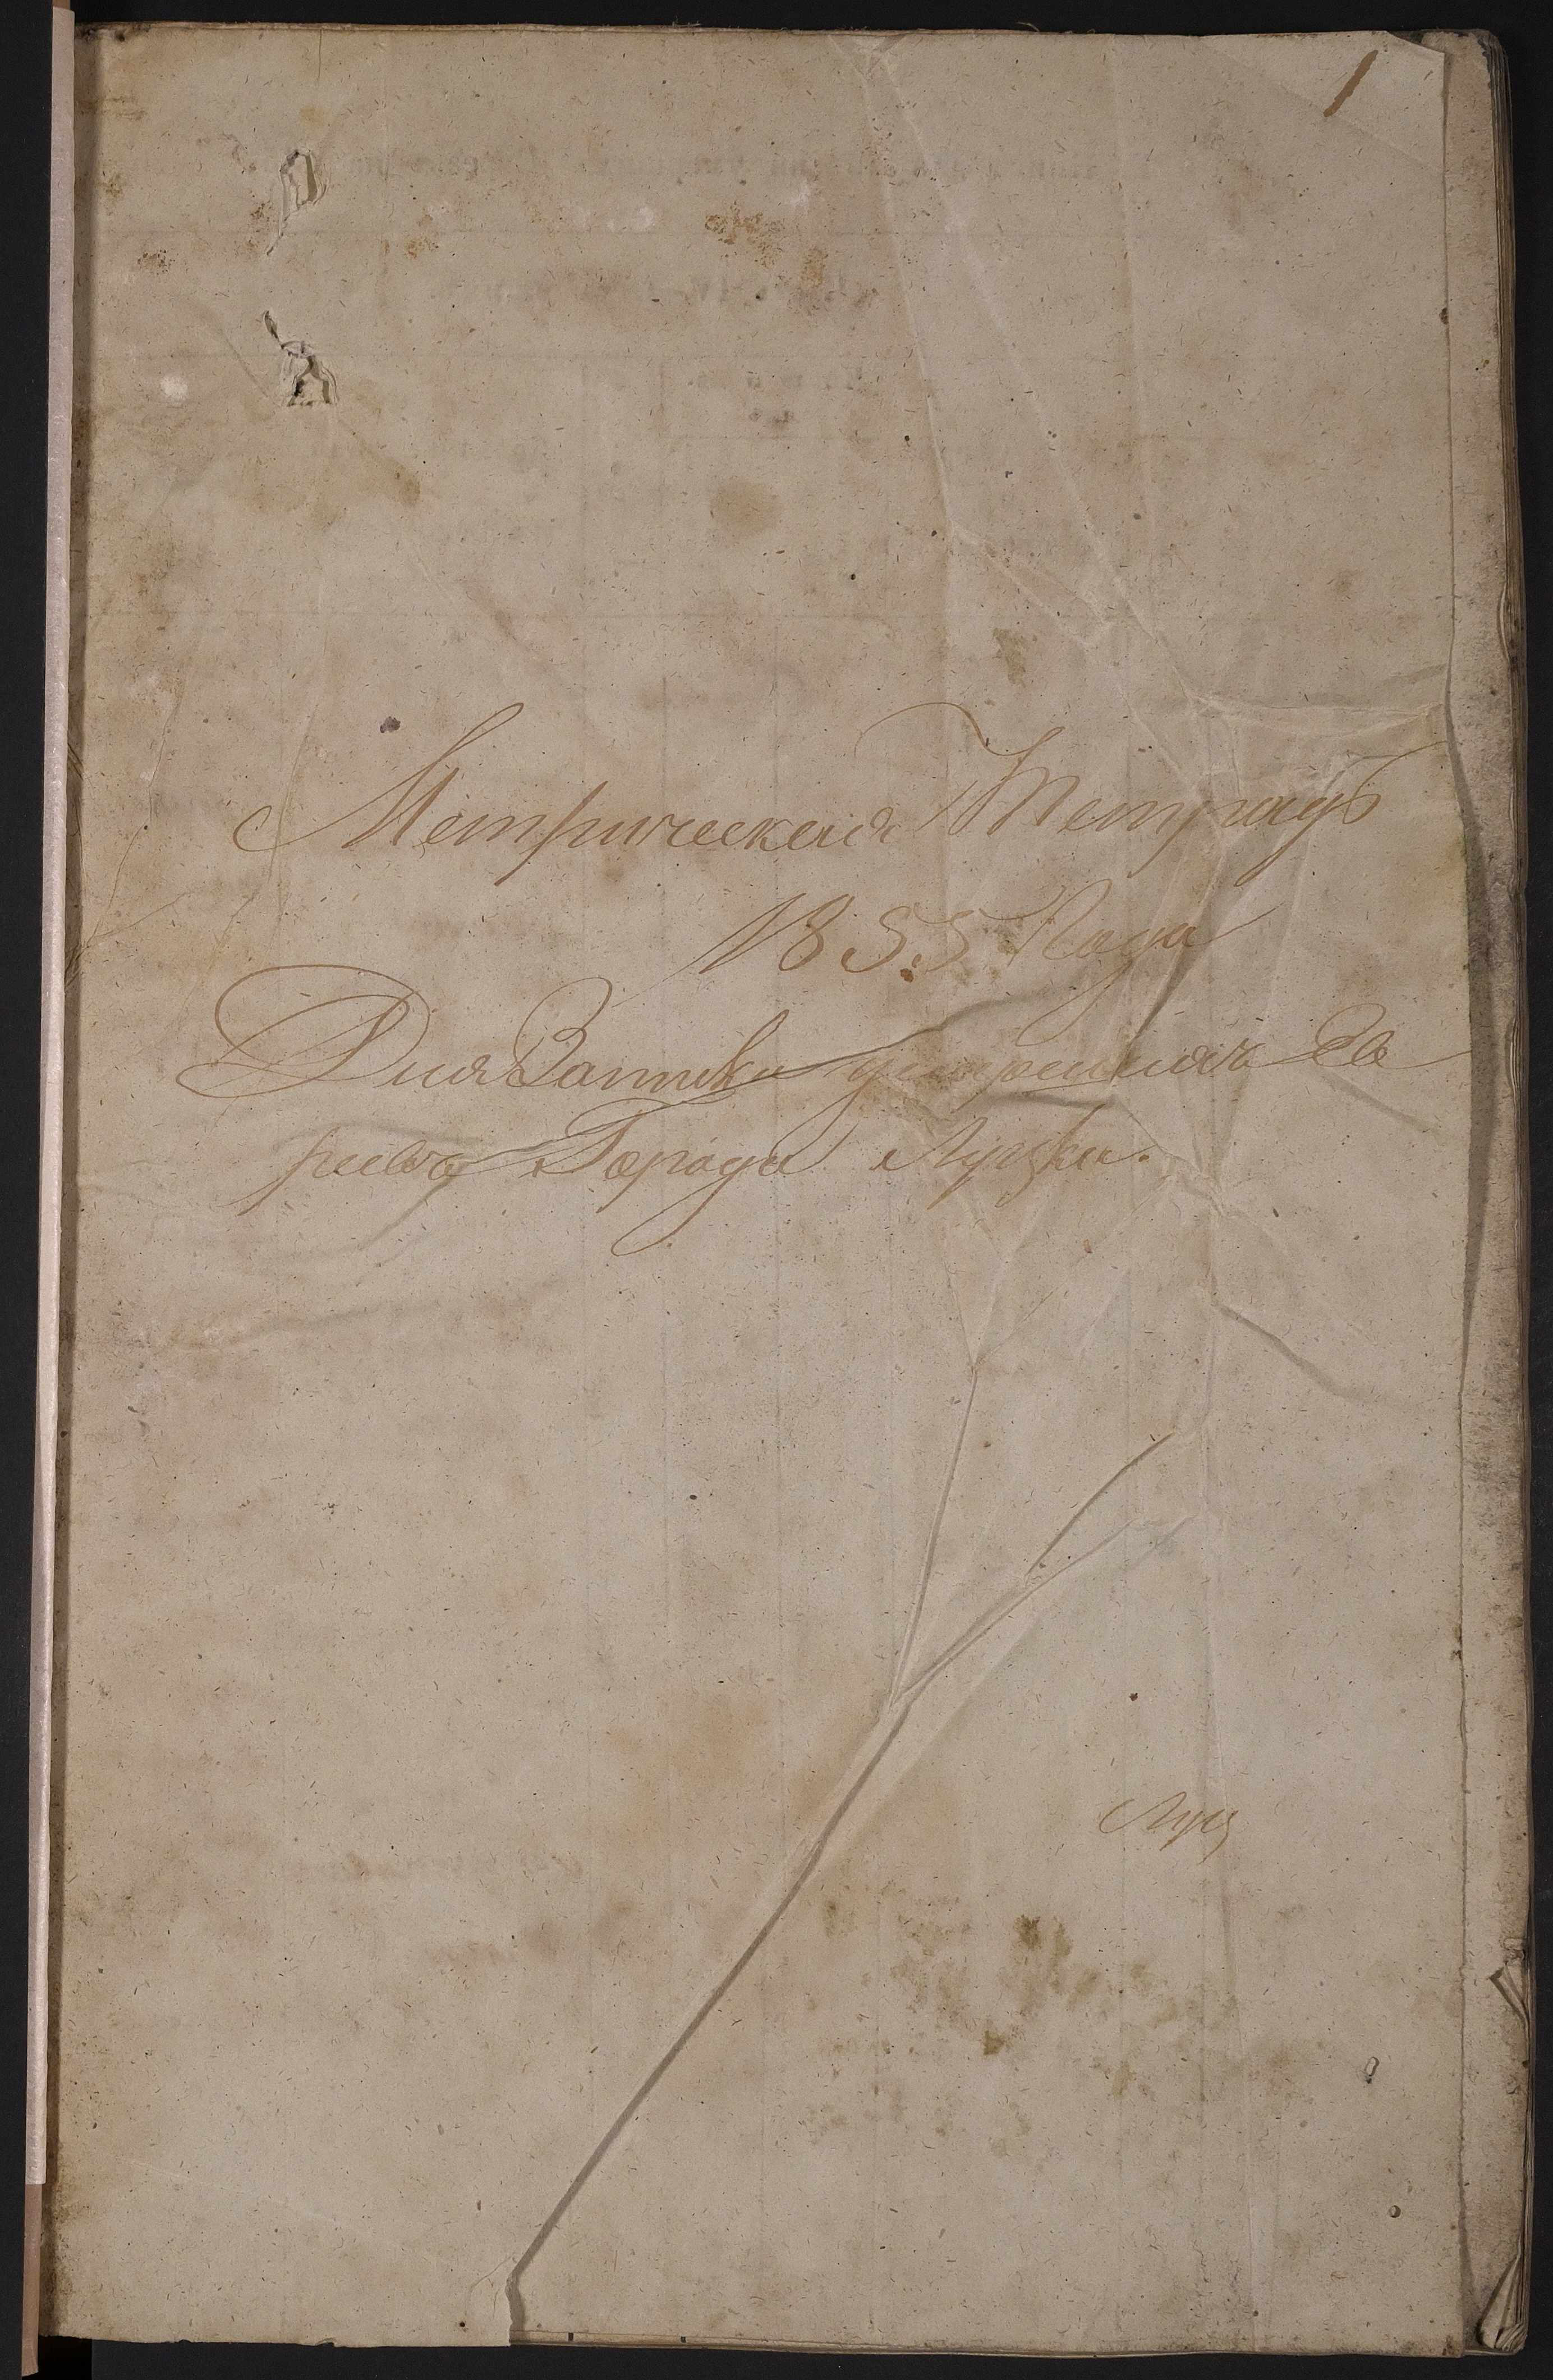 1
Метрическая Тетрадь
1855 Года
Для Записки умершихъ Ев
реевъ Города Луцка.
Луц